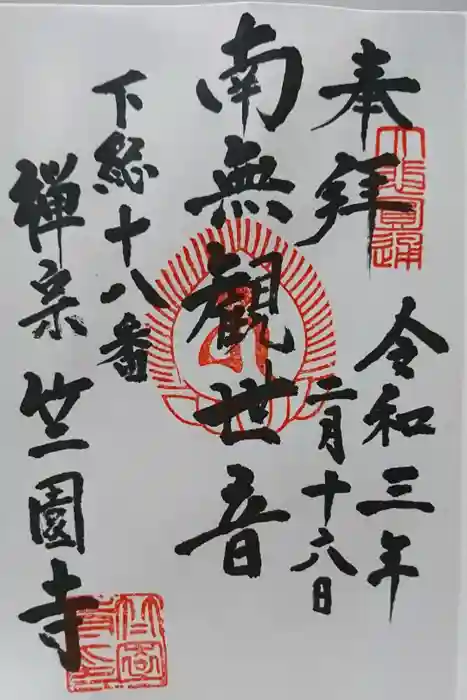 奉拝
令和三年
二月十六日
南無観世音
下総十八番
禅宗竺園寺